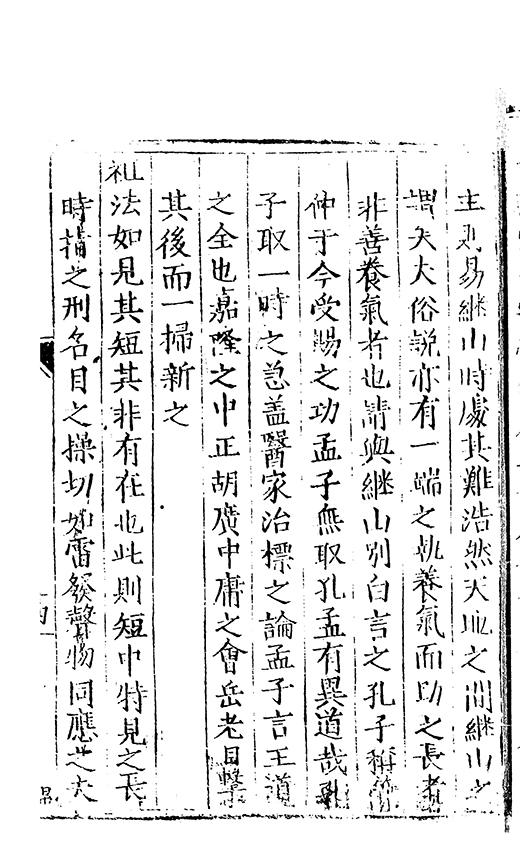 主則易繼山時處其難浩然天地之間繼山之
謂夫大俗説亦有一端之執養氣而助之長者
非善養氣者也請與繼山別白言之孔子稱管
仲于今受賜之功孟子無取孔孟有異道哉孔
子取一時之急盖醫家治標之論孟子言王道
之全也嘉隆之中正胡廣中庸之會岳老目擊
其後而一掃新之
祖法如見其短其非有在也此則短中特見之長
時措之刑名目之操切如雷發聲物同應之夫